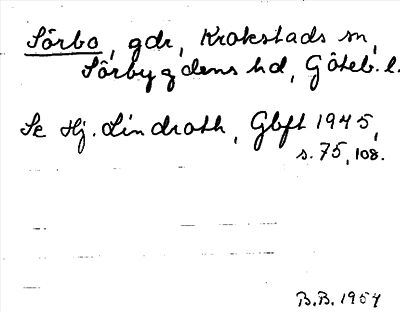 Sörbo, gdr, Krokstads sn,
Sörbygdens hd, Göteb. l.
Se Hj. Lindroth, Gbft 1945,
s. 75, 108.
B.B. 1954